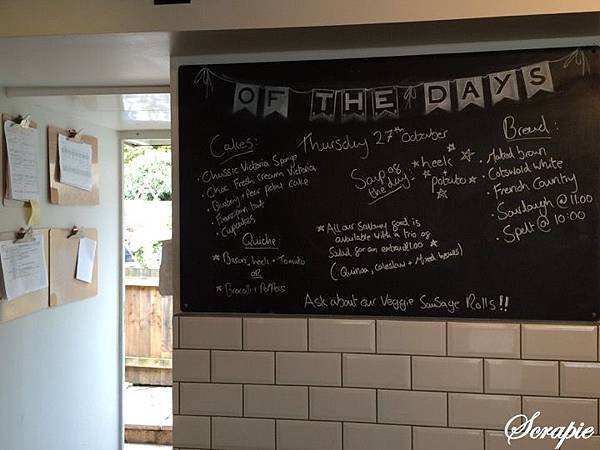 OF THE DAYS
Cakes:
• Classic Victoria Sponge
• Choc Fresh cream Victoria
• rose petal cake
• Frangipan tart
• Cupcakes
Quiche:
* Bacon, leeks + Tomato
OR
* Brocolli + Peppers
Thursday 27th October
Soup of
the day:
* leek &
potato *
* All our savoury food is
available with a trio of
Salad for an extra £1.00 *
(Quinoa, coleslaw + Mixed leaves)
Ask about our Veggie Sausage Rolls!!
Bread:
• Malted brown
• Cotswold white
• French Country
• Sourdough @ 11.00
• Spelt @ 10:00
Scrapie